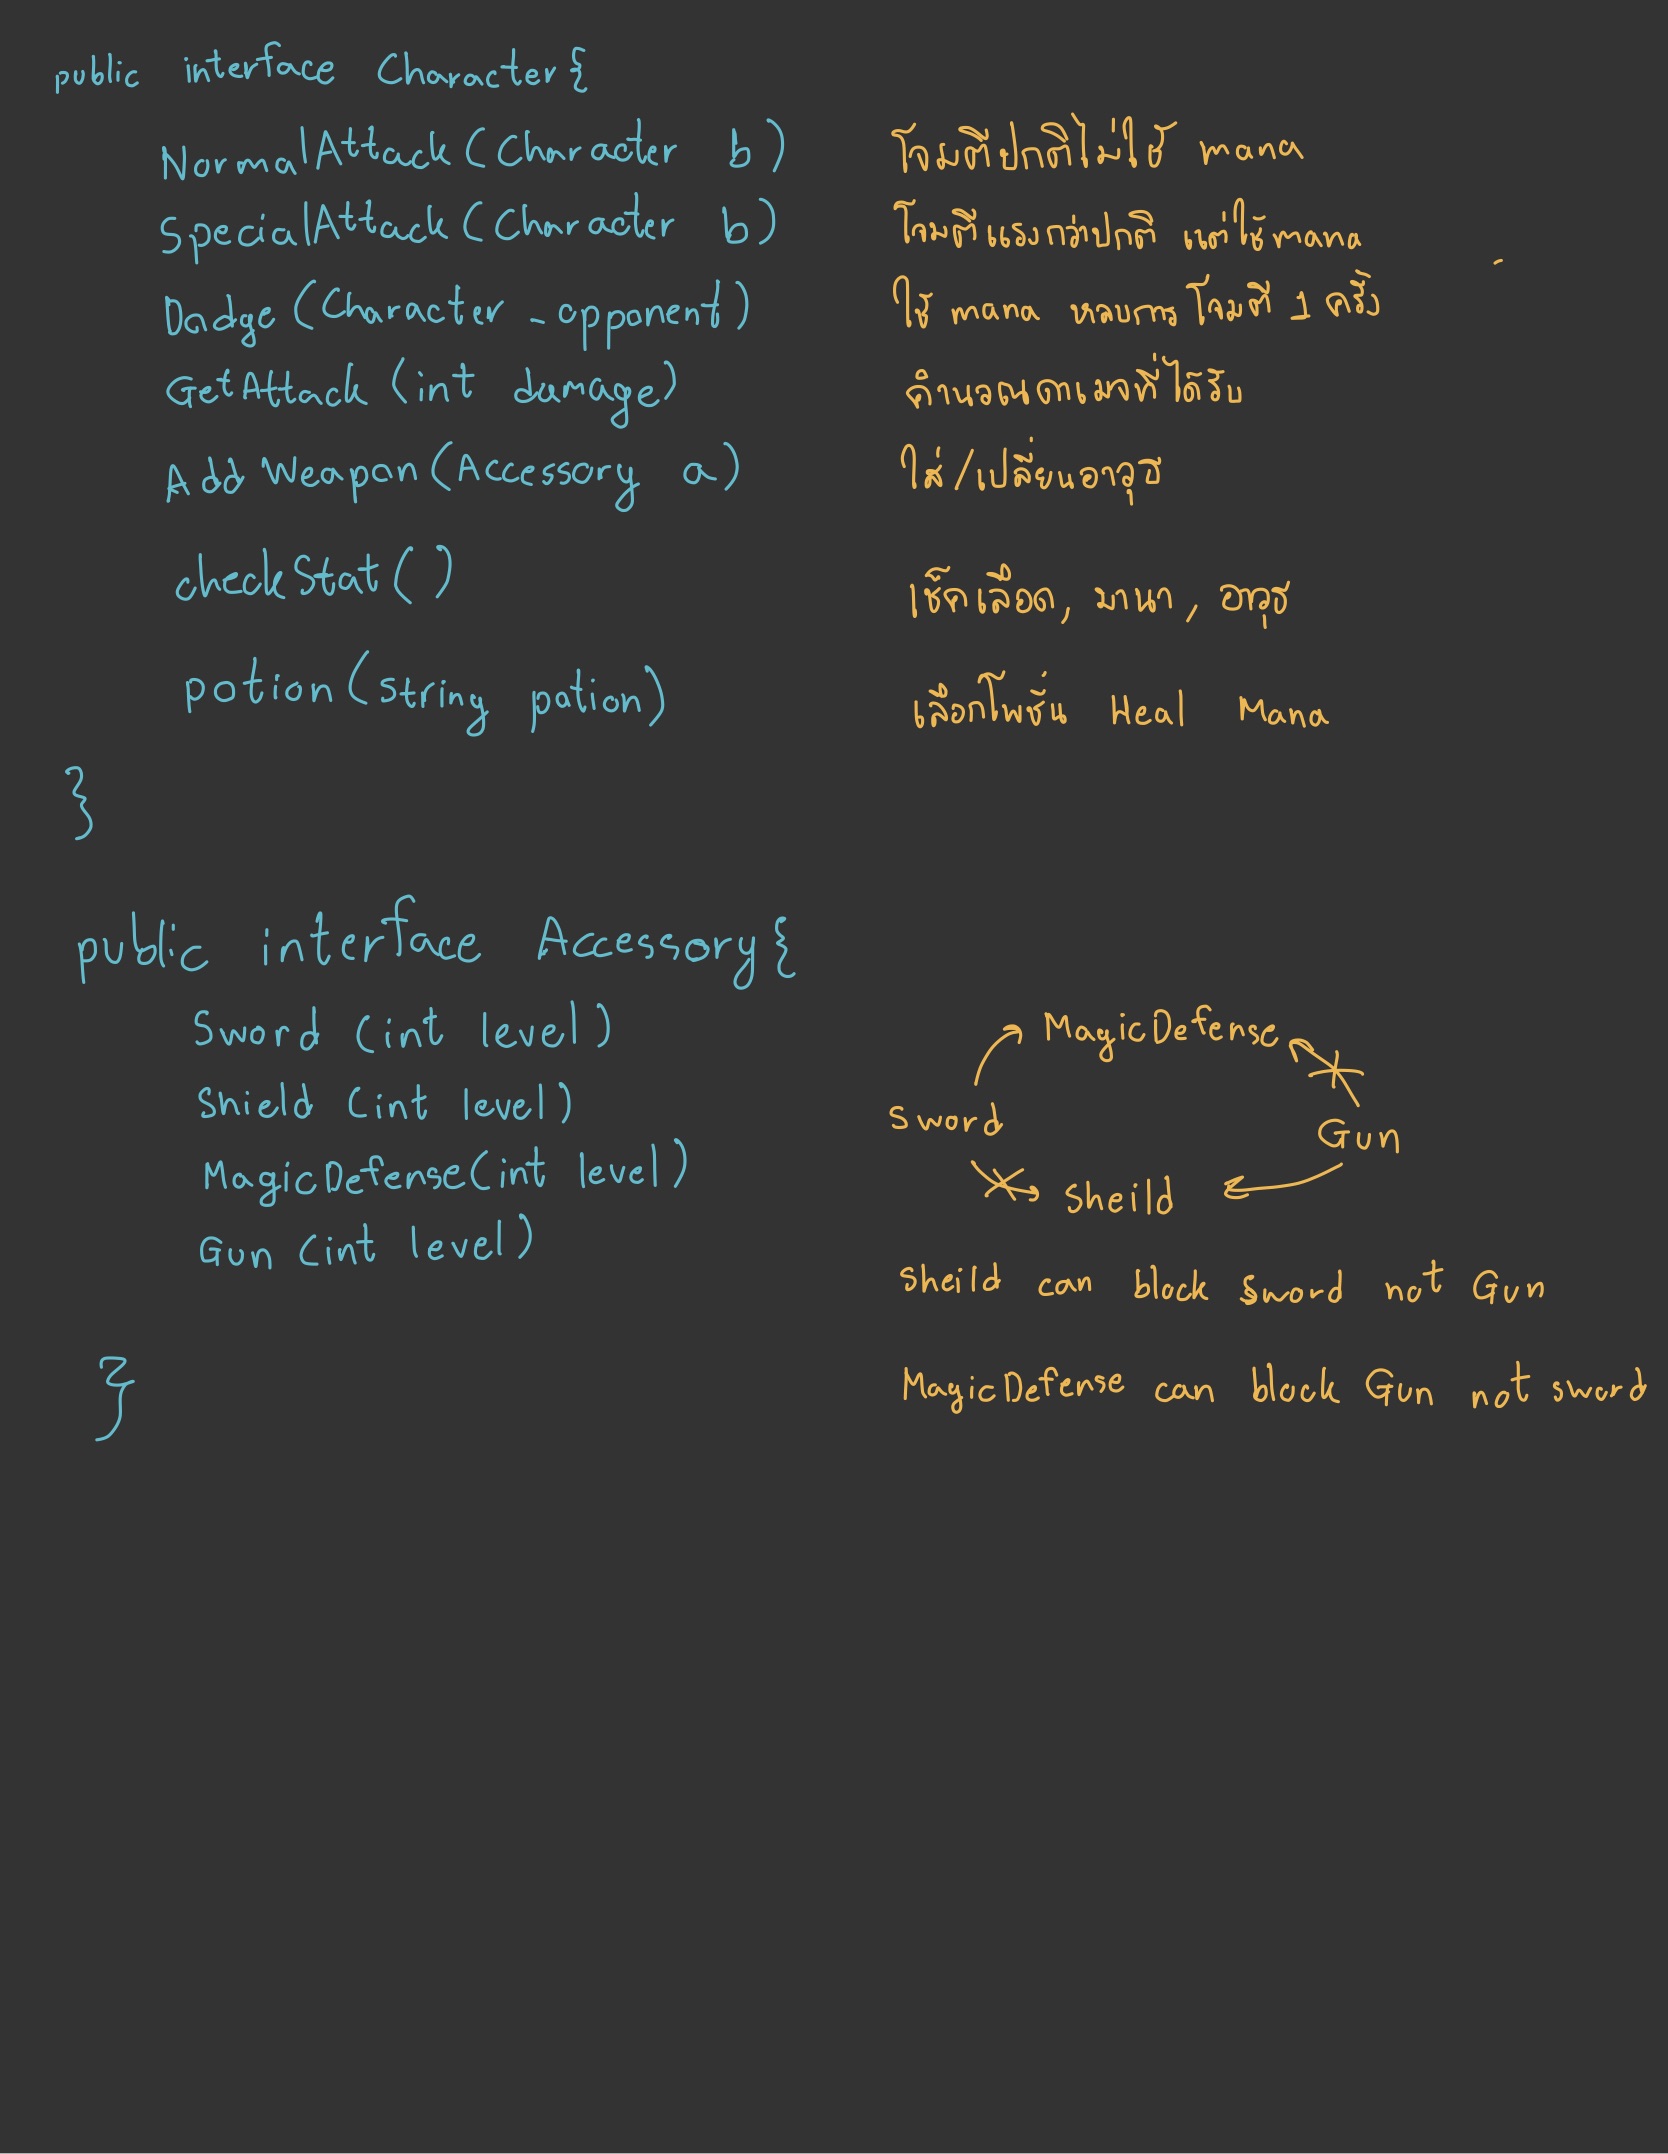 public interface Character{
NormalAttack(Character b) โจมตีปกติไม่ใช้ mana
SpecialAttack(Character b) โจมตีแรงกว่าปกติ แต่ใช้mana
Dodge(Character _opponent) ใช้ mana หลบการโจมตี 1 ครั้ง
GetAttack(int damage) คำนวณดาเมจที่ได้รับ
AddWeapon(Accessory a) ใส่/เปลี่ยนอาวุธ
checkStat() เช็คเลือด, มานา, อาวุธ
potion(string potion) เลือกโพชั่น Heal Mana
}
public interface Accessory{
Sword (int level) MagicDefense
Shield (int level) Sword Gun
MagicDefense(int level) Sheild
Gun (int level) Sheild can block Sword not Gun
} MagicDefense can block Gun not sword